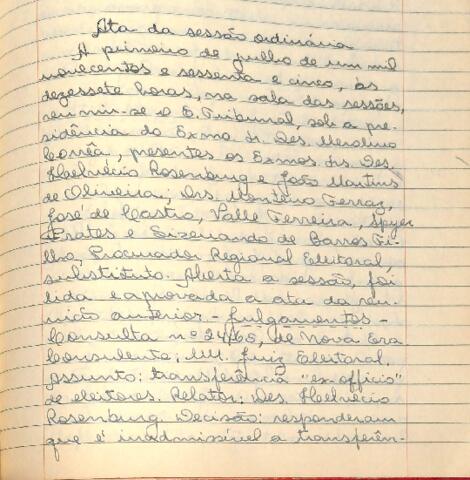 Ata da sessão ordinária
A primeiro de julho de um mil
novecentos e sessenta e cinco, às
dezessete horas, na sala das sessões,
reuniu-se o E. Tribunal, sob a pre-
sidência do Exmo. Sr. Des. Merolino
Corrêa, presentes os Exmos. Srs. Des.
Helvécio Rosenburg e João Martins
de Oliveira; Drs. Monteiro Ferraz,
José de Castro, Valle Ferreira, Spyer
Prates e Sizenando de Barros Fi-
lho, Procurador Regional Eleitoral,
substituto. Aberta a sessão, foi
lida e aprovada a ata da reu-
nião anterior. - Julgamentos -
Consulta nº 24/65, de Nova Era
Consulente: MM. Juiz Eleitoral.
Assunto: transferência "ex-officio"
de eleitores. Relator: Des. Helvécio
Rosenburg. Decisão: responderam
que é inadmissível a transferên-